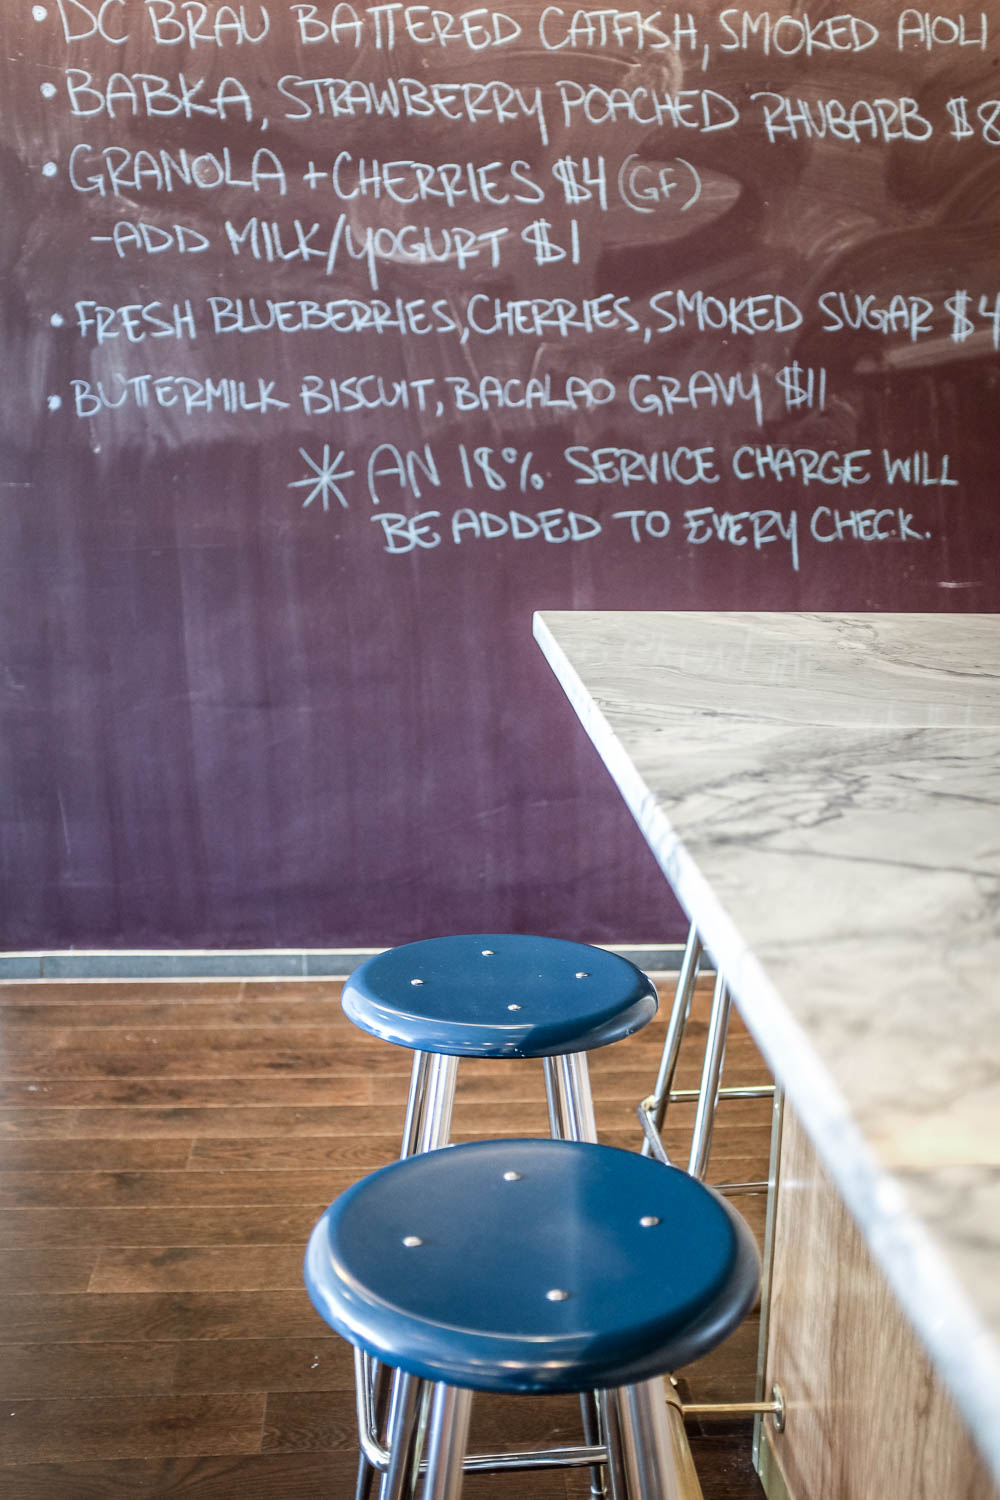 • DC BRAU BATTERED CATFISH, SMOKED AIOLI
• BABKA, STRAWBERRY POACHED RHUBARB $8
• GRANOLA + CHERRIES $4 (GF)
-ADD MILK/YOGURT $1
• FRESH BLUEBERRIES, CHERRIES, SMOKED SUGAR $4
• BUTTERMILK BISCUIT, BACALAO GRAVY $11
* AN 18% SERVICE CHARGE WILL
BE ADDED TO EVERY CHECK.